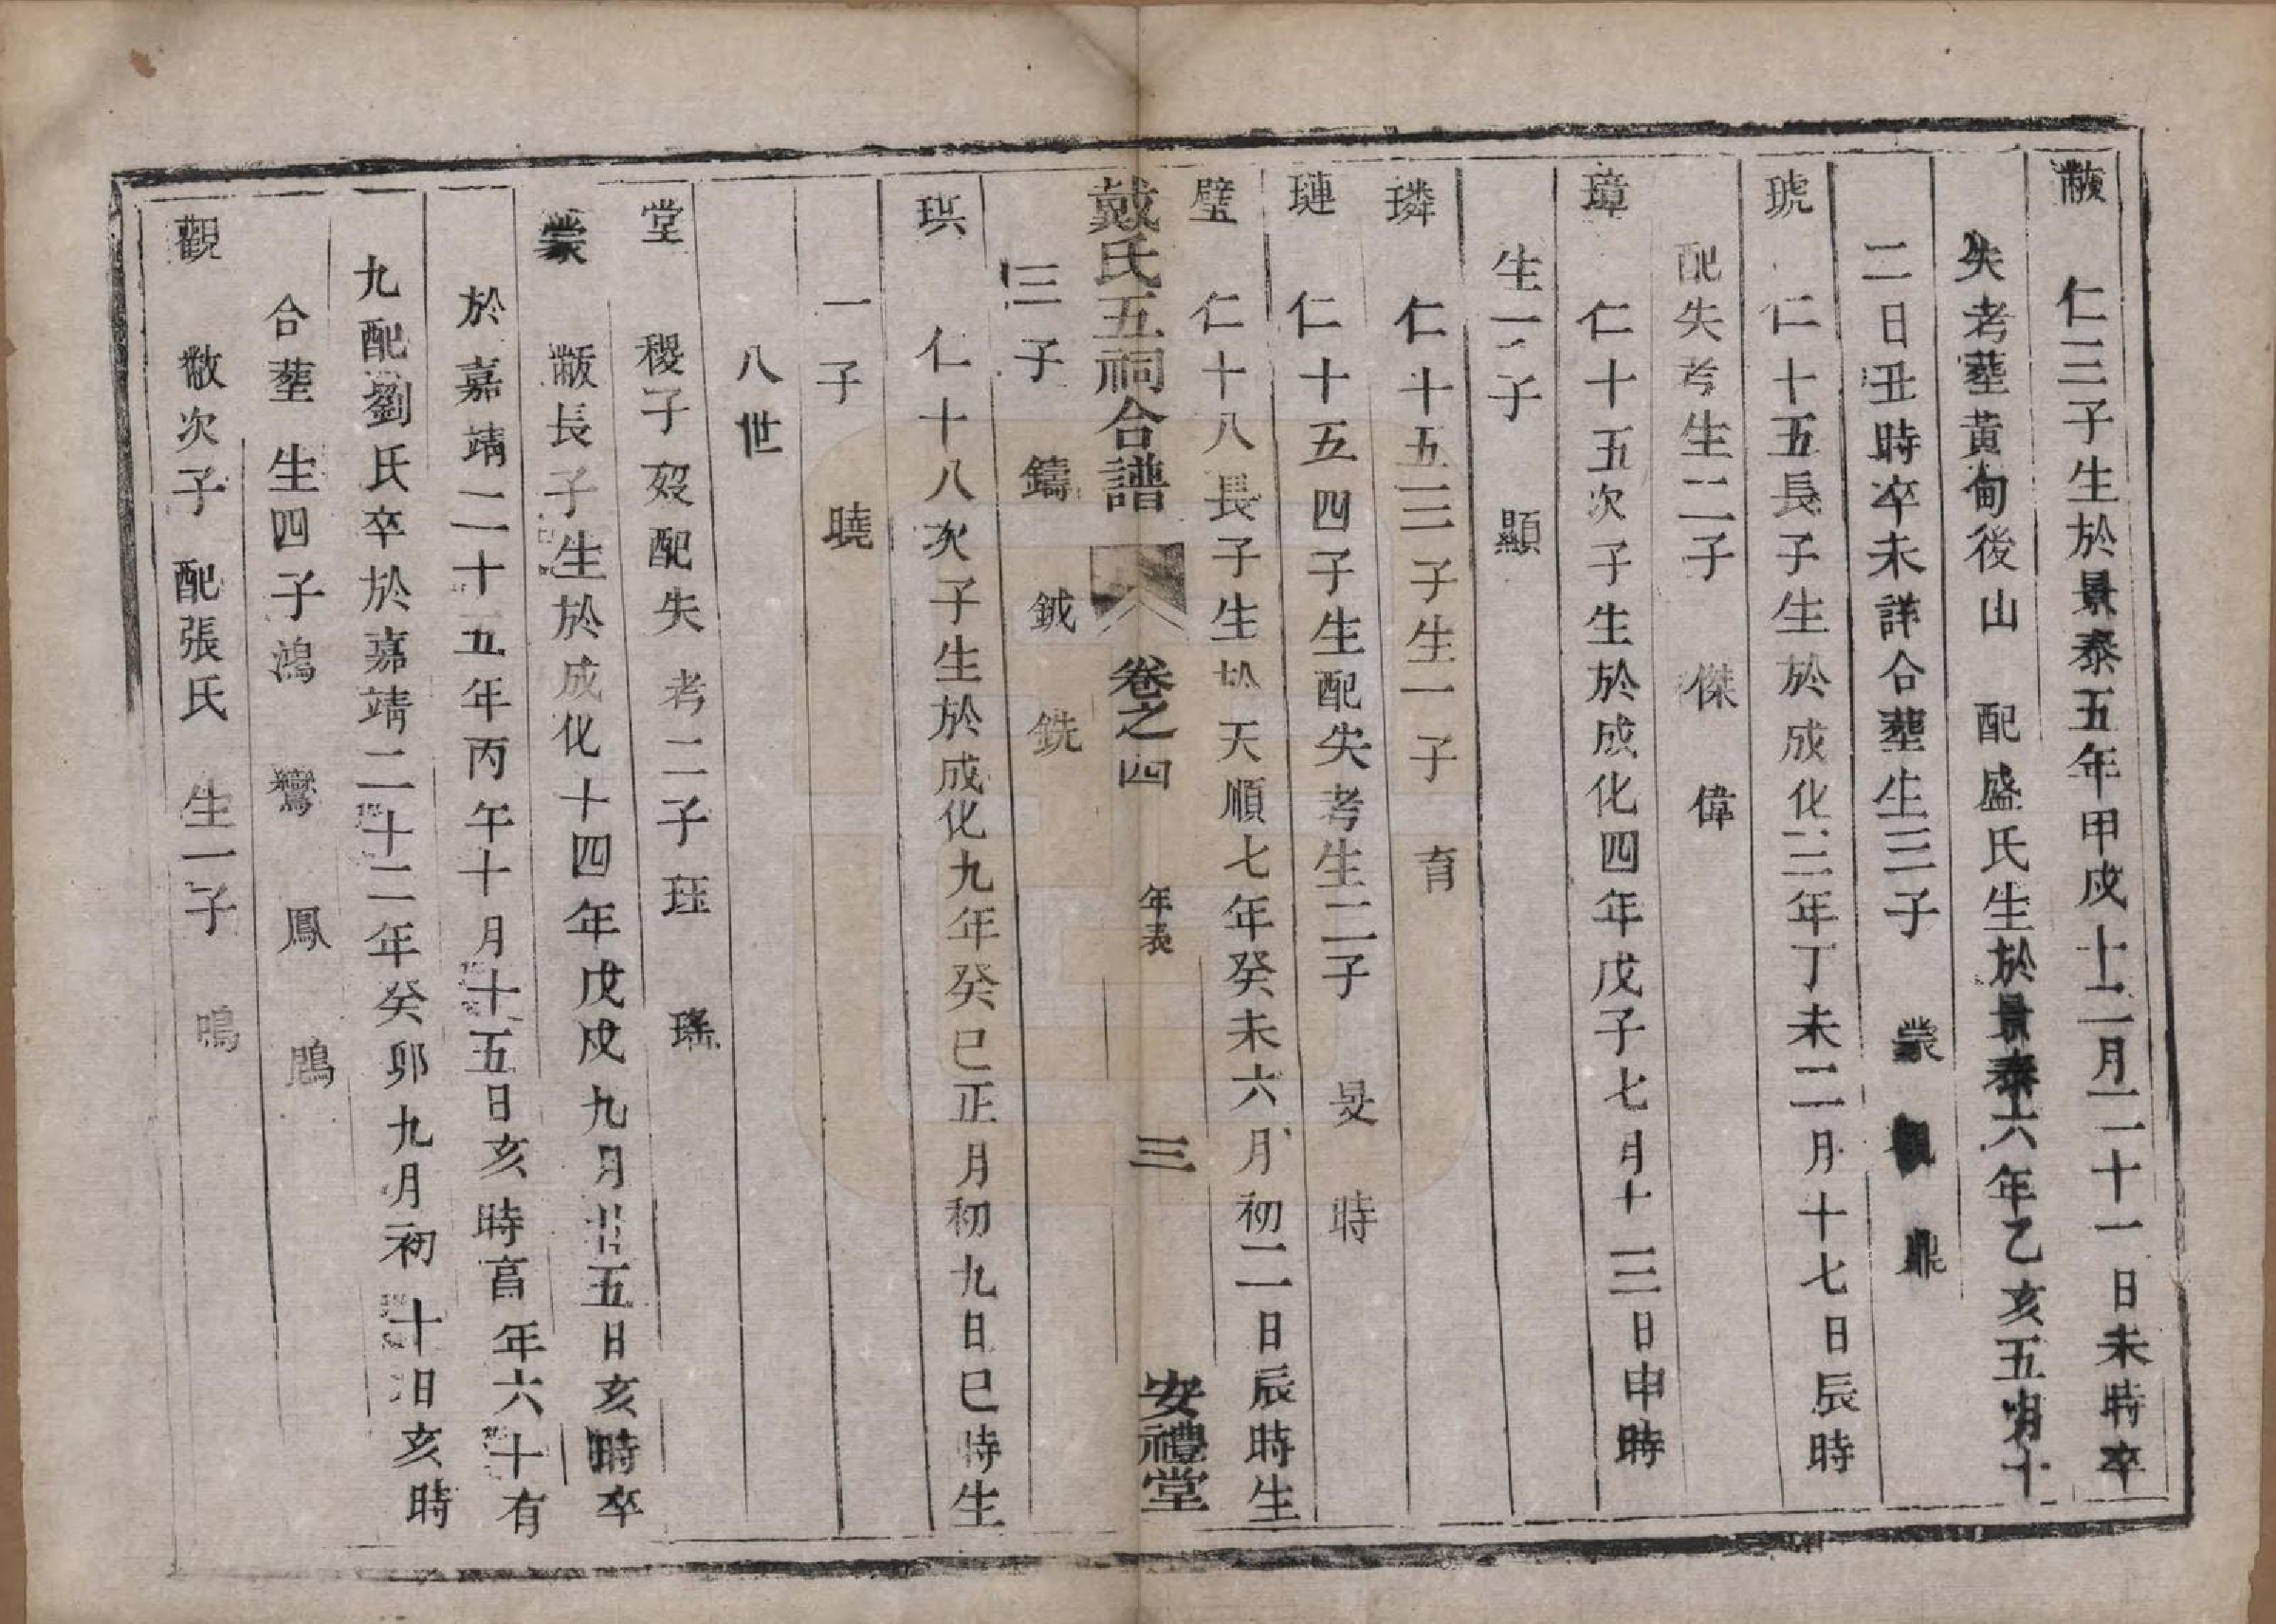 黻 仁三子生於景泰五年甲戌十二月二十一日未時卒
失考塟黃甸後山 配盛氏生於景泰六年乙亥五月十
二日丑時卒未詳合塟生三子 蒙 觀 鼎
琥 仁十五長子生於成化三年丁未二月十七日辰時
配失考生二子 傑 偉
璋 仁十五次子生於成化四年戊子七月十三日申時
生一子 顯
璘 仁十五三子生一子 育
璉 仁十五四子生配失考生二子 旻 時
璧 仁十八長子生於天順七年癸未六月初二日辰時生
戴氏五祠合譜 卷之四 年表 三 安禮堂
三子 鑄 鉞 銑
珙 仁十八次子生於成化九年癸巳正月初九日巳時生
一子 曉
八世
堂 稷子歿配失考二子珏 瑤
蒙 黻長子生於成化十四年戊戌九月廿五日亥時卒
於嘉靖二十五年丙午十月十五日亥時享年六十有
九配劉氏卒於嘉靖二十二年癸卯九月初十日亥時
合塟 生四子鴻 鸞 鳳 鵰
觀 黻次子 配張氏 生一子 鳴